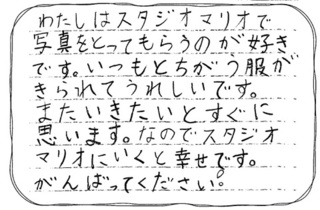 わたしはスタジオマリオで
写真をとってもらうのが好き
です。いつもとちがう服が
きられてうれしいです。
またいきたいとすぐに
思います。なのでスタジオ
マリオにいくと幸せです。
がんばってください。